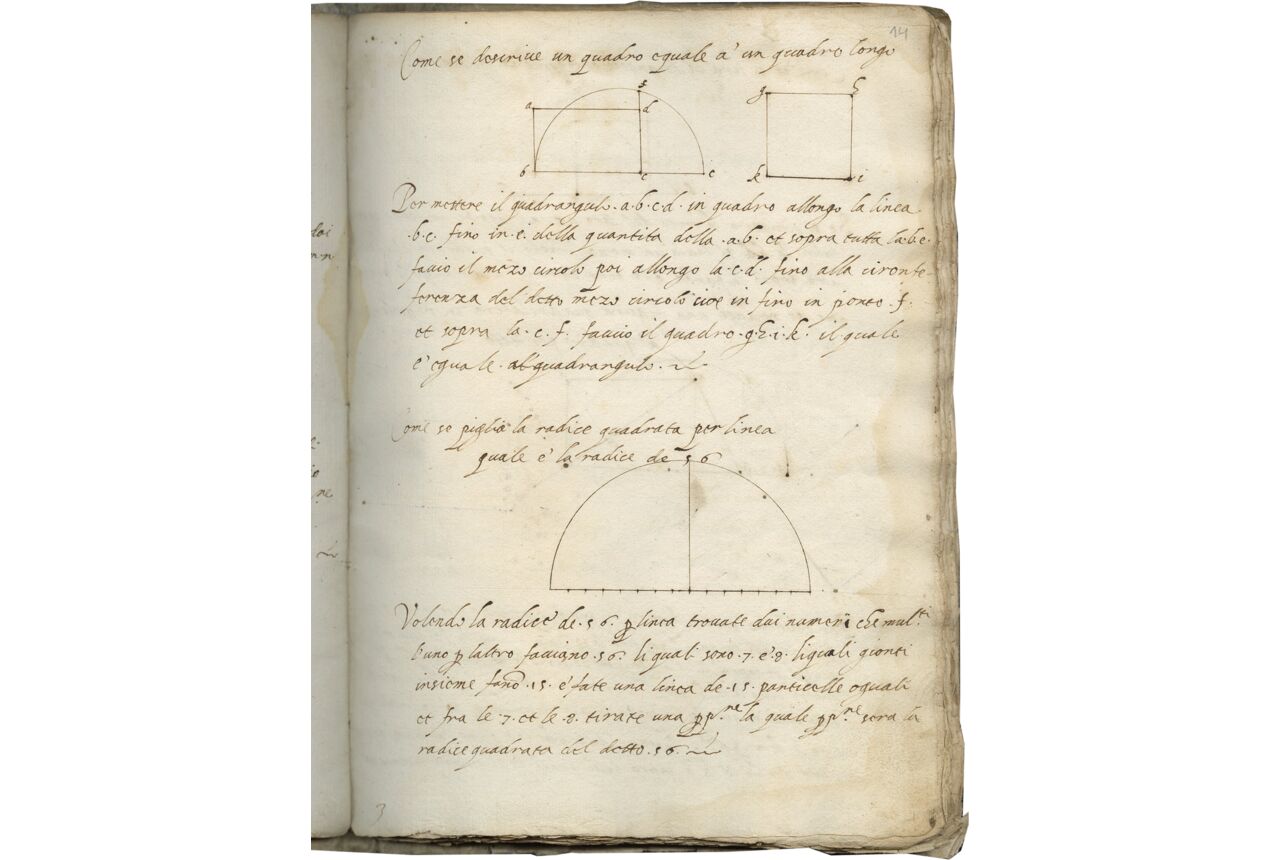 14
Come se descrive un quadro equale a' un quadro longo
f
g h
a d
b c e
k i
Per mettere il quadrangulo .a.b.c.d. in quadro allongo la linea
.b.c. fino in .e. della quantita della .a.b. et sopra tutta la .b.e.
faccio il mezo circolo poi allongo la .c.d. fino alla circonfe-
ferenza del detto mezo circolo cioe in fino in ponto .f.
et sopra la .c.f. faccio il quadro .g.h.i.k. il quale
e' equale al quadrangulo.
Come se piglia la radice quadrata per linea
quale e' la radice de 56
Volendo la radice de .56. p linea trovate dui numeri che mul.ti
l'uno p laltro faciano .56. li quali sono .7. e' 8. liquali gionti
insieme fano .15. e' fate una linea de .15. particelle equali
et fra le .7. et le .8. tirate una ppne la quale pp.ne sera la
radice quadrata del detto .56.
3
doi
ne